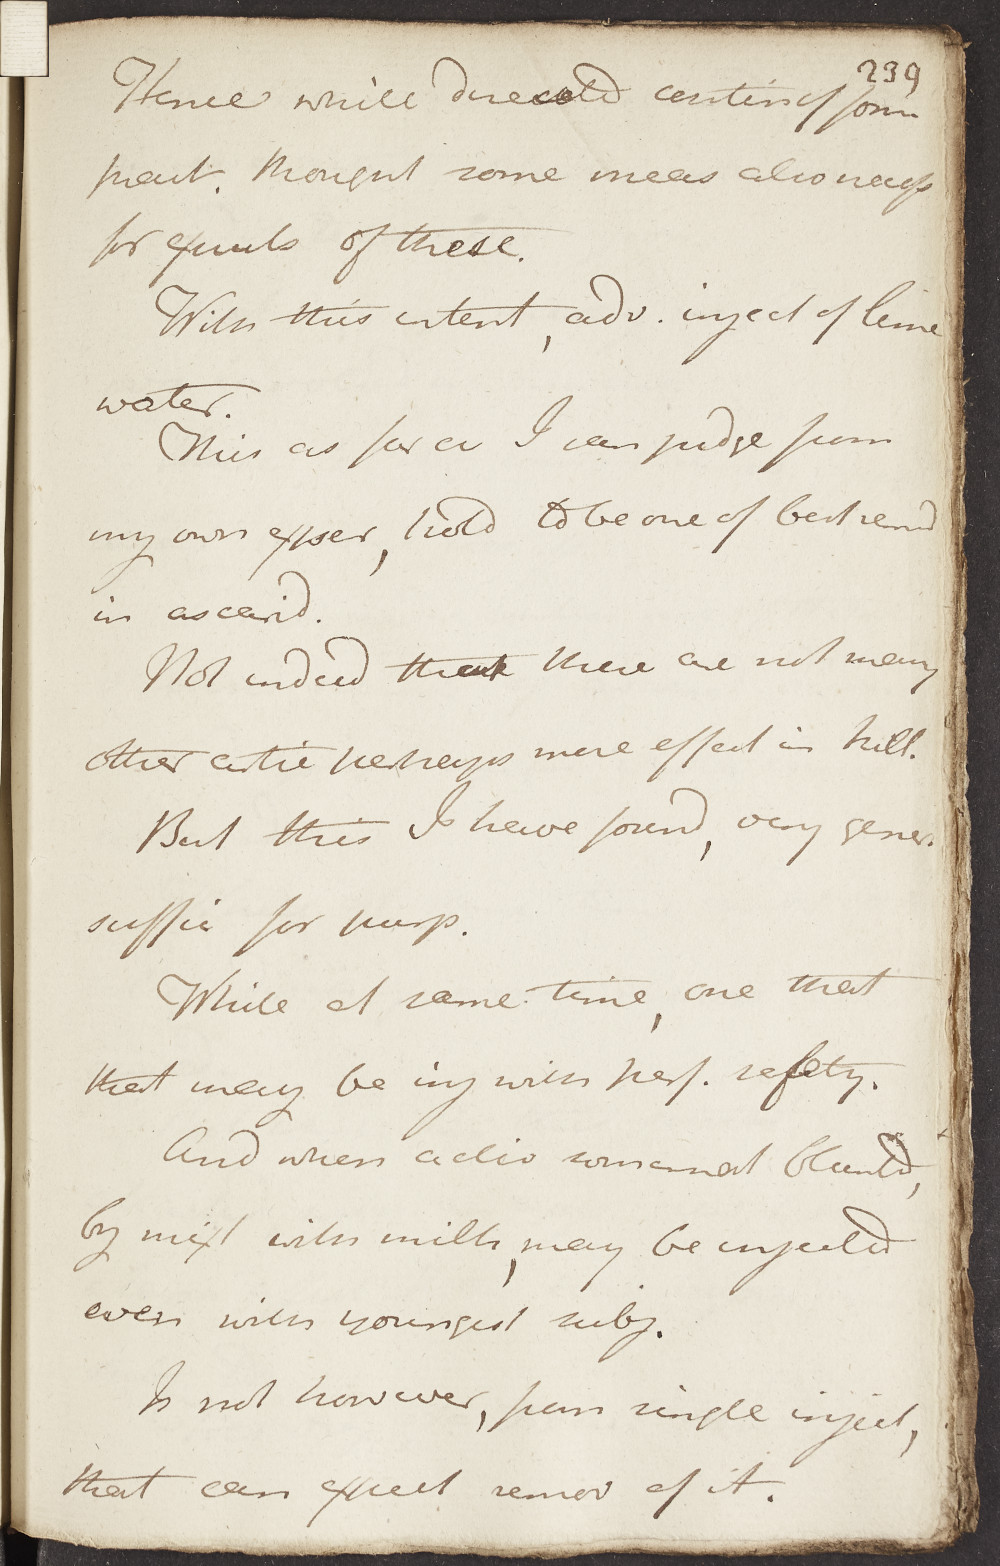 239
Hence while directed contin of form
pract. thought some meas also necess
for expuls of these.
With this intent, adv. inject of lime
water.
This as far as I can judge from
my own exper, hold to be one of best remd
in ascarid.
Not indeed that there are not many
other artic perhaps more effect in kill.
But this I have found, very gener.
suffic for purp.
While at same time, one that
that may be inj with perf. safety.
And when activ somewhat blunted,
by mixt with milk, may be injected
even with youngest subj.
Is not however, from single inject,
that can expect remov of it.